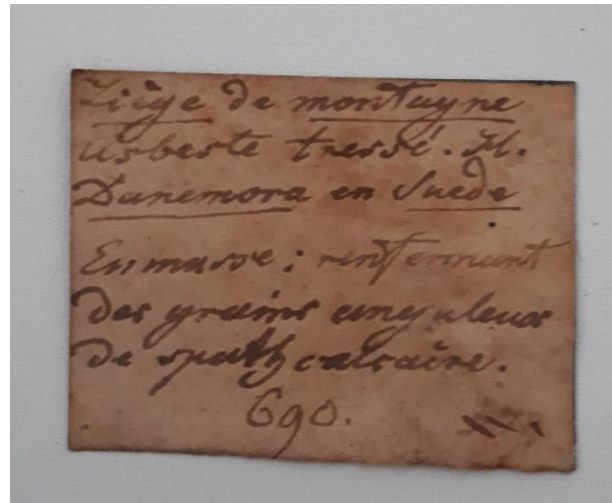 Liège de montagne
Asbeste tressé. H.
Danemora en Suede
En masse; renfermant
des grains anguleux
de spath calcaire.
690.